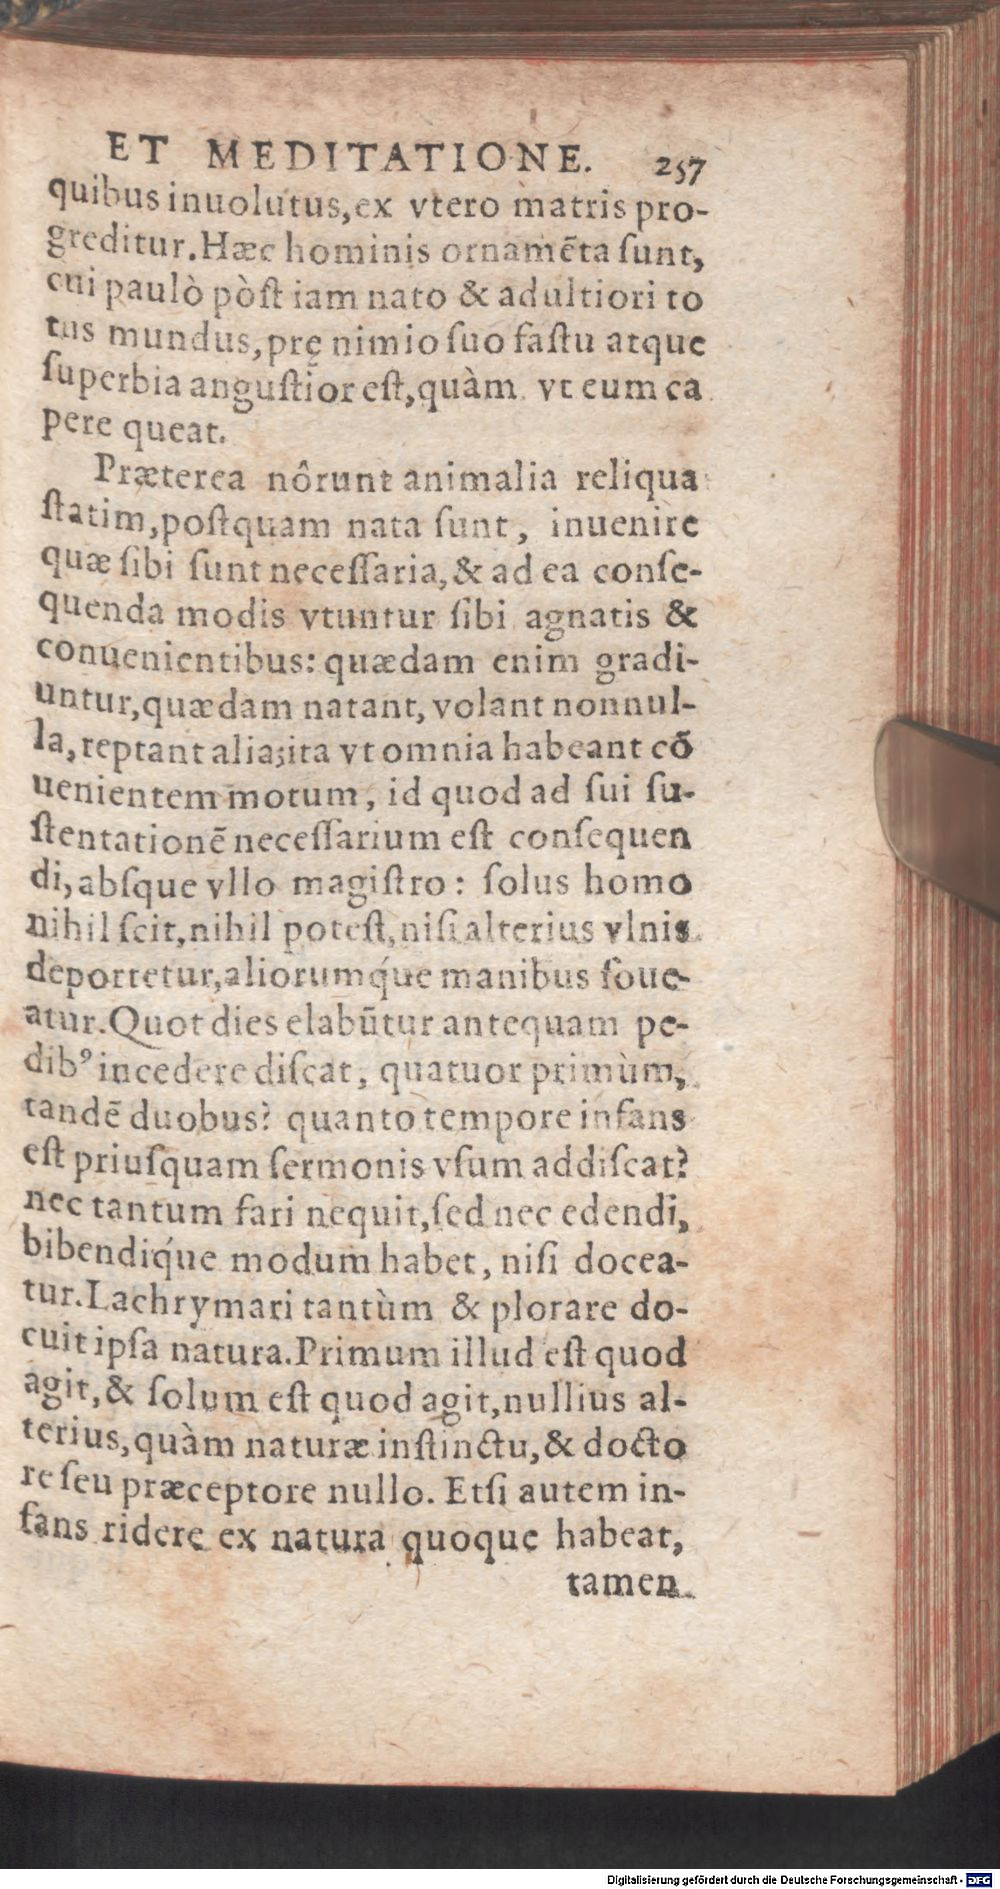 ET MEDITATIONE. 257
quibus inuolutus, ex vtero matris pro-
greditur. Hæc hominis ornamẽta ſunt,
cui paulò pòſt iam nato & adultiori to
tus mundus, prę nimio ſuo faſtu atque
ſuperbia anguſtior eſt, quàm vt eum ca
pere queat.
Præterea nôrunt animalia reliqua
ſtatim, poſtquam nata ſunt, inuenire
quæ ſibi ſunt neceſſaria, & ad ea conſe-
quenda modis vtuntur ſibi agnatis &
conuenientibus: quædam enim gradi-
untur, quædam natant, volant nonnul-
la, reptant alia; ita vt omnia habeant cõ
uenientem motum, id quod ad ſui ſu-
ſtentationẽ neceſſarium eſt conſequen
di, abſque vllo magiſtro: ſolus homo
nihil ſcit, nihil poteſt, niſi alterius vlnis
deportetur, aliorumq́ue manibus foue-
atur. Quot dies elabũtur antequam pe-
dibꝰ incedere diſcat, quatuor primùm,
tandẽ duobus? quanto tempore infans
eſt priuſquam ſermonis vſum addiſcat?
nec tantum fari nequit, ſed nec edendi,
bibendiq́ue modum habet, niſi docea-
tur. Lachrymari tantùm & plorare do-
cuit ipſa natura. Primum illud eſt quod
agit, & ſolum eſt quod agit, nullius al-
terius, quàm naturæ inſtinctu, & docto
re ſeu præceptore nullo. Etſi autem in-
fans ridere ex natura quoque habeat,
tamen
Digitalisierung gefördert durch die Deutsche Forschungsgemeinschaft - DFG